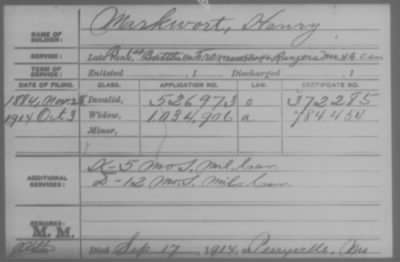 NAME OF SOLDIER: Markwort, Henry
SERVICE: Late B, 1st Battn Rangers Mo. S. G. Cav
TERM OF SERVICE: Enlisted , 1 Discharged , 1
DATE OF FILING. CLASS. APPLICATION NO. LAW. CERTIFICATE NO.
1884, Nov. Invalid, 526973 o 372285
1914 Oct 3 Widow, 1034,906 a 784454
Minor,
ADDITIONAL SERVICES: K-5 Mo. S. Mil. Cav.
D-12 Mo. S. Mil. Cav.
REMARKS:
M. M.
Died Sep 17, 1914, at Perryville, Mo